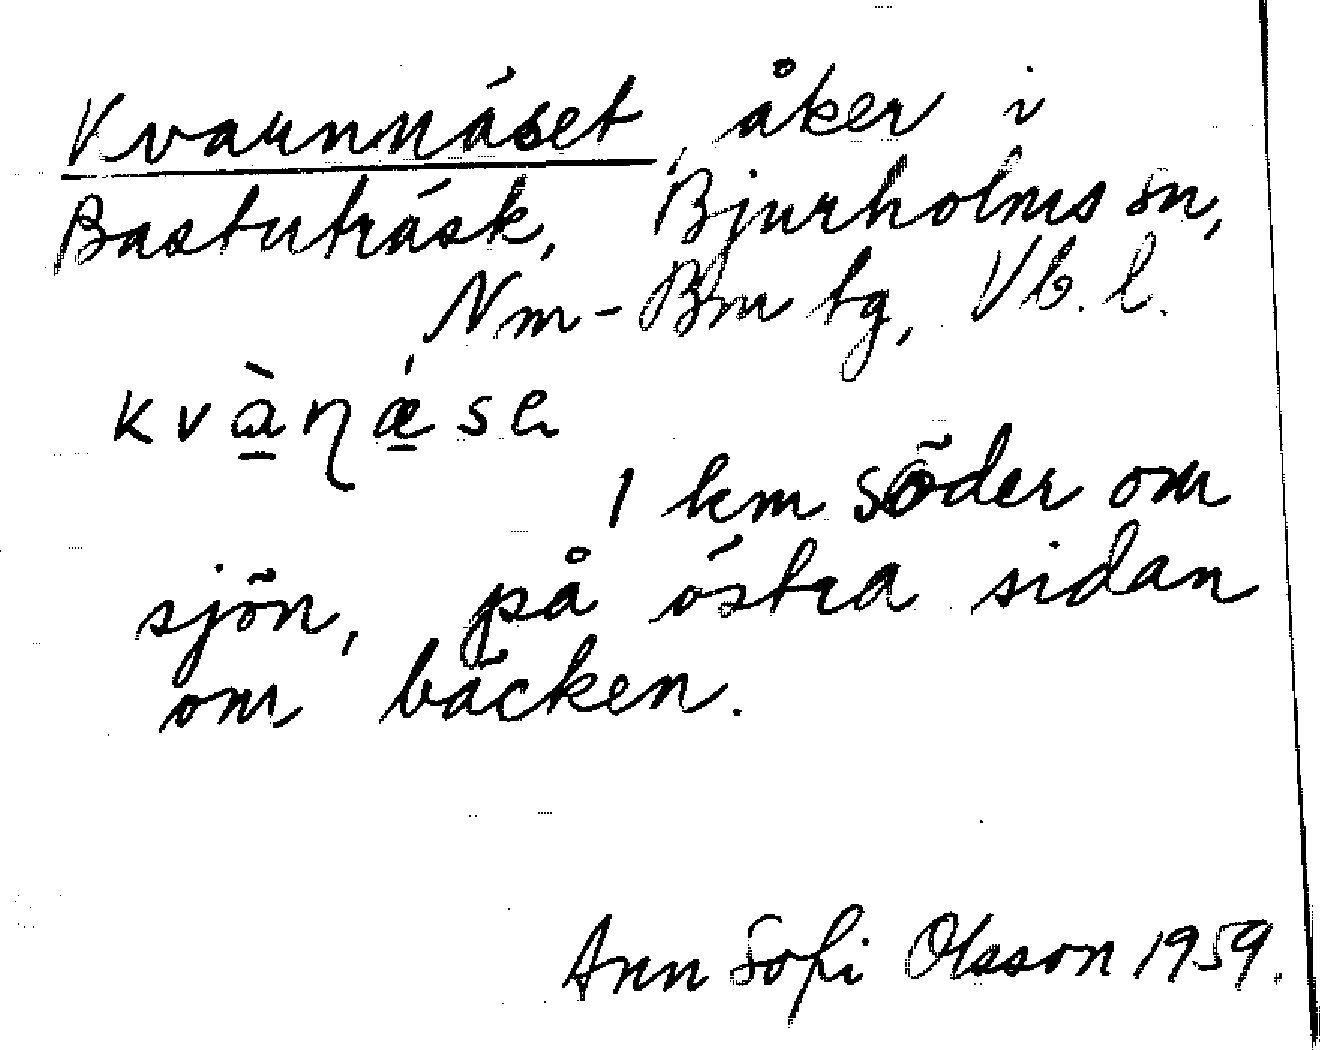 Kvarnnäset, åker i
Bastuträsk, Bjurholms sn,
Nm-Bm tg, Vb. l.
kvàɳǽse
1 km söder om
sjön, på östra sidan
om bäcken.
Ann Sofi Olsson 1959.